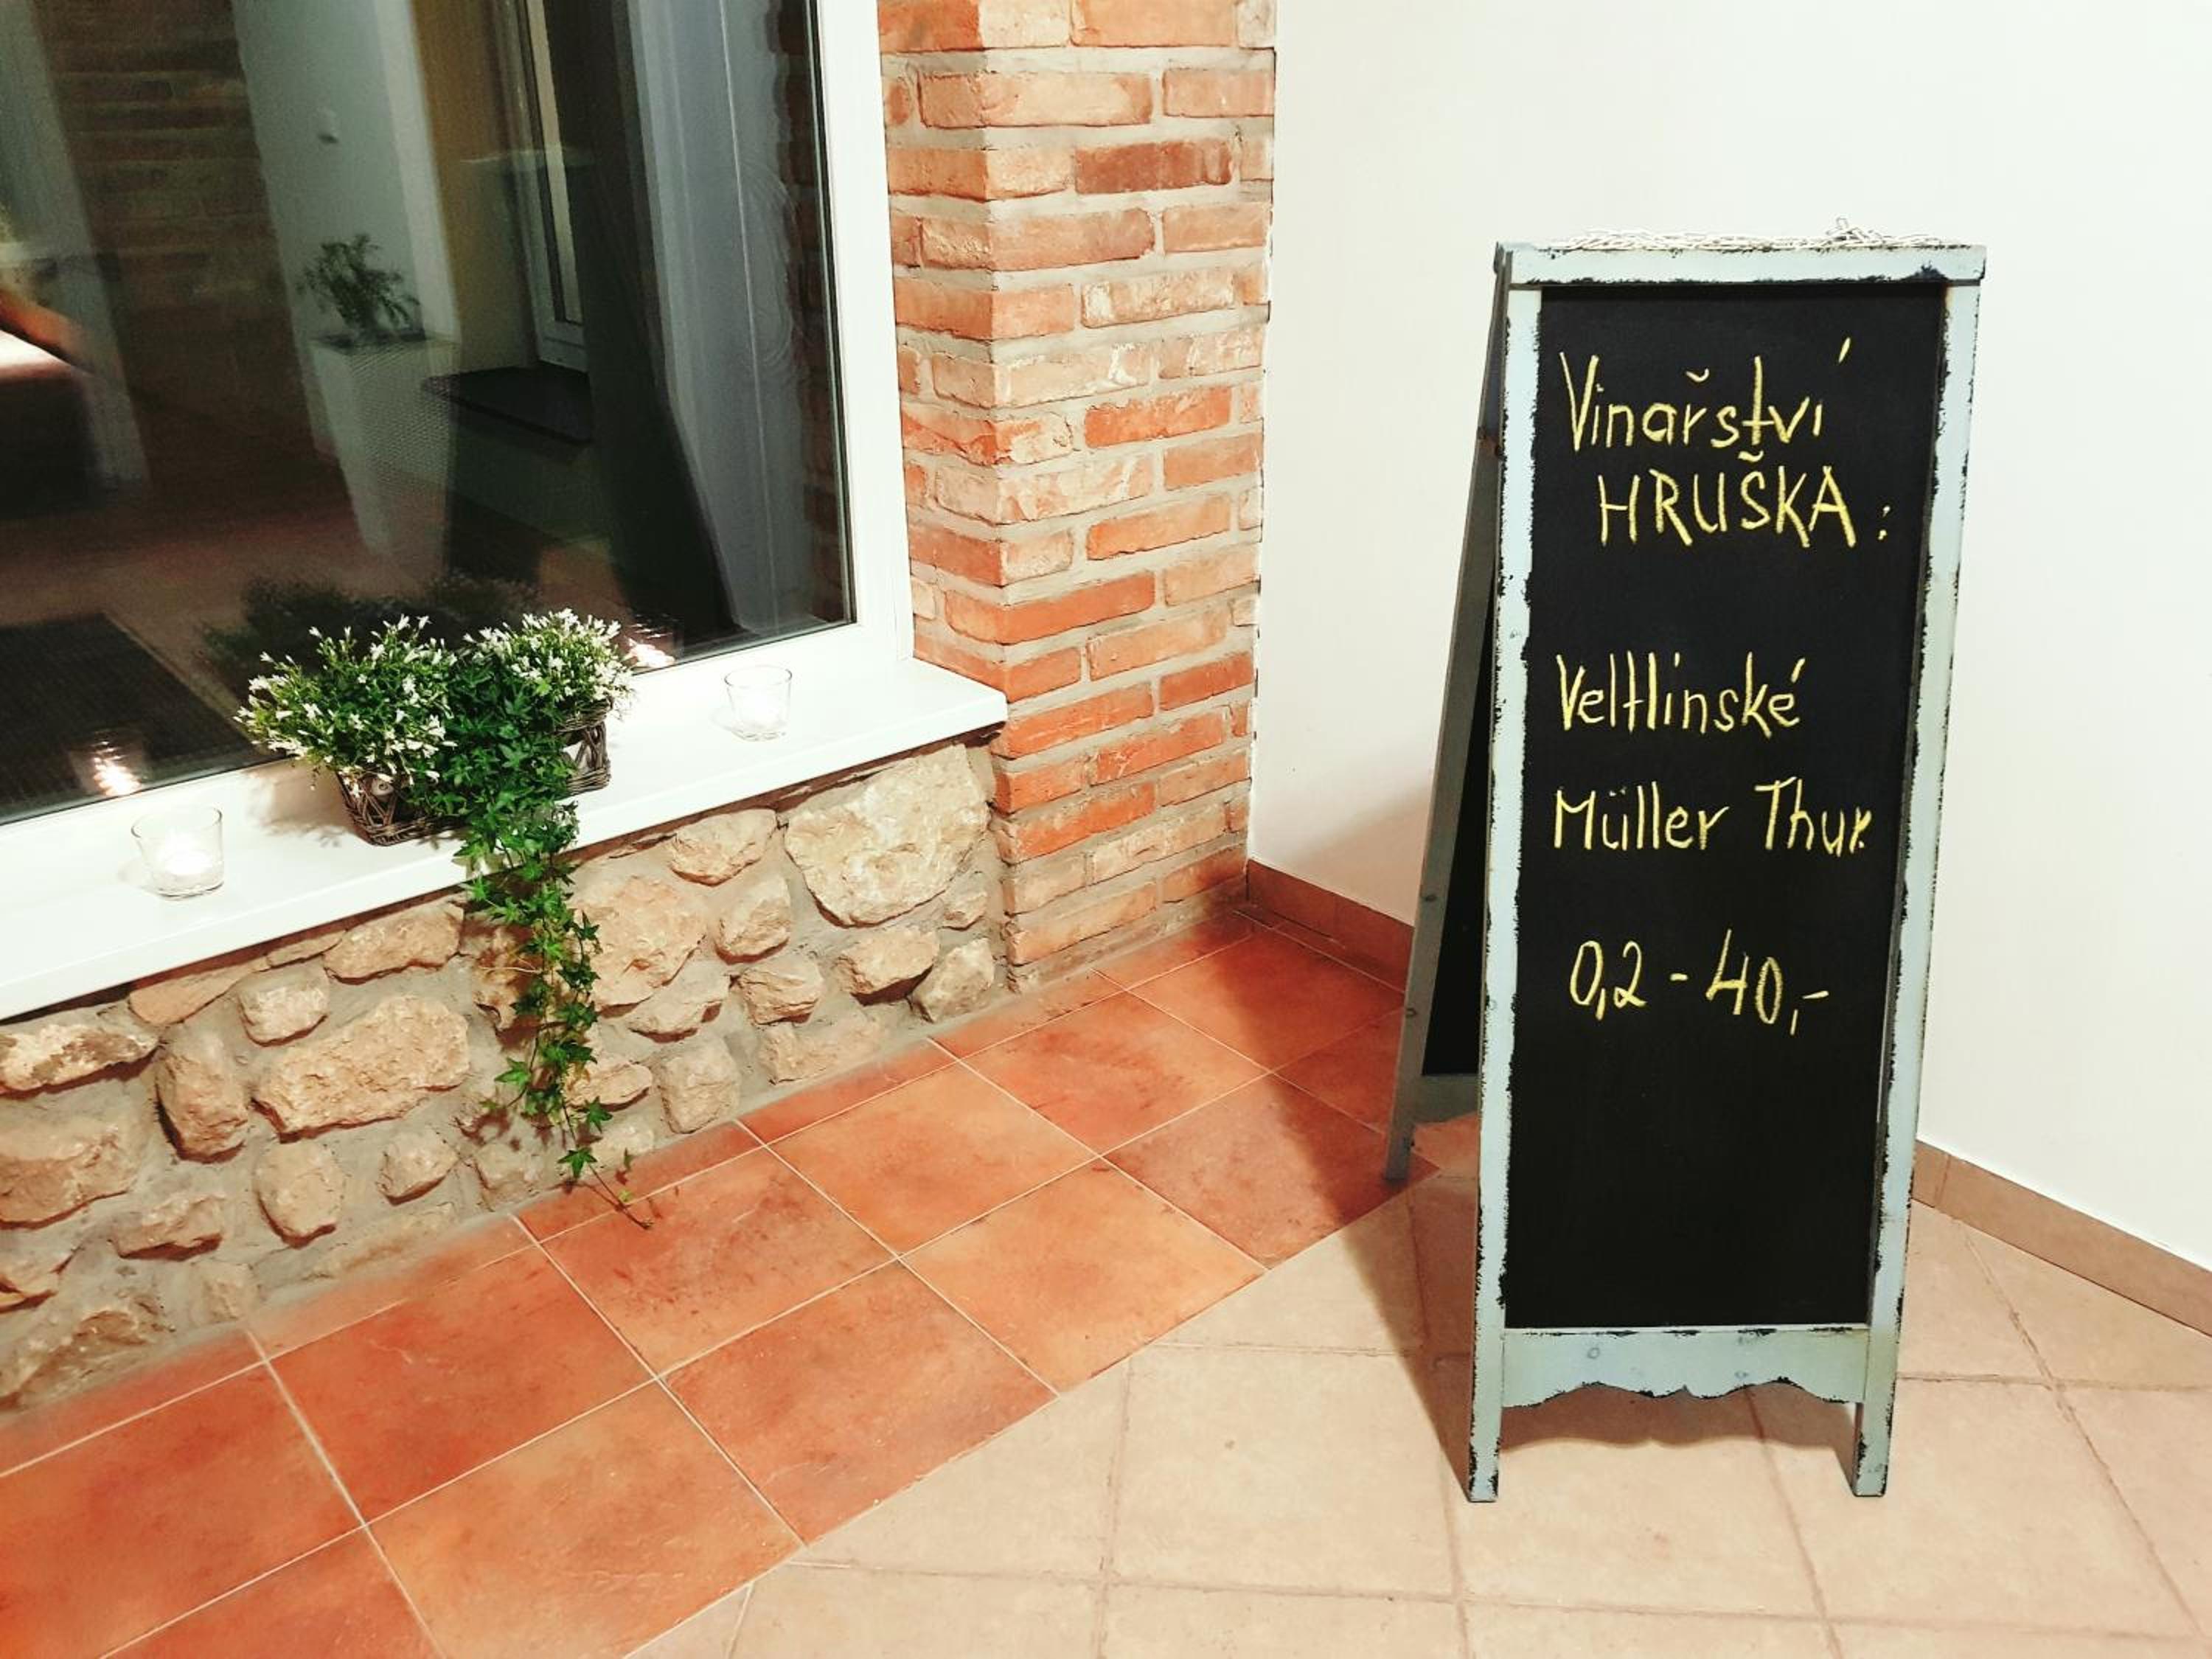 Vinařství
HRUŠKA:
Veltlinské
Müller Thur.
0,2 - 40,-